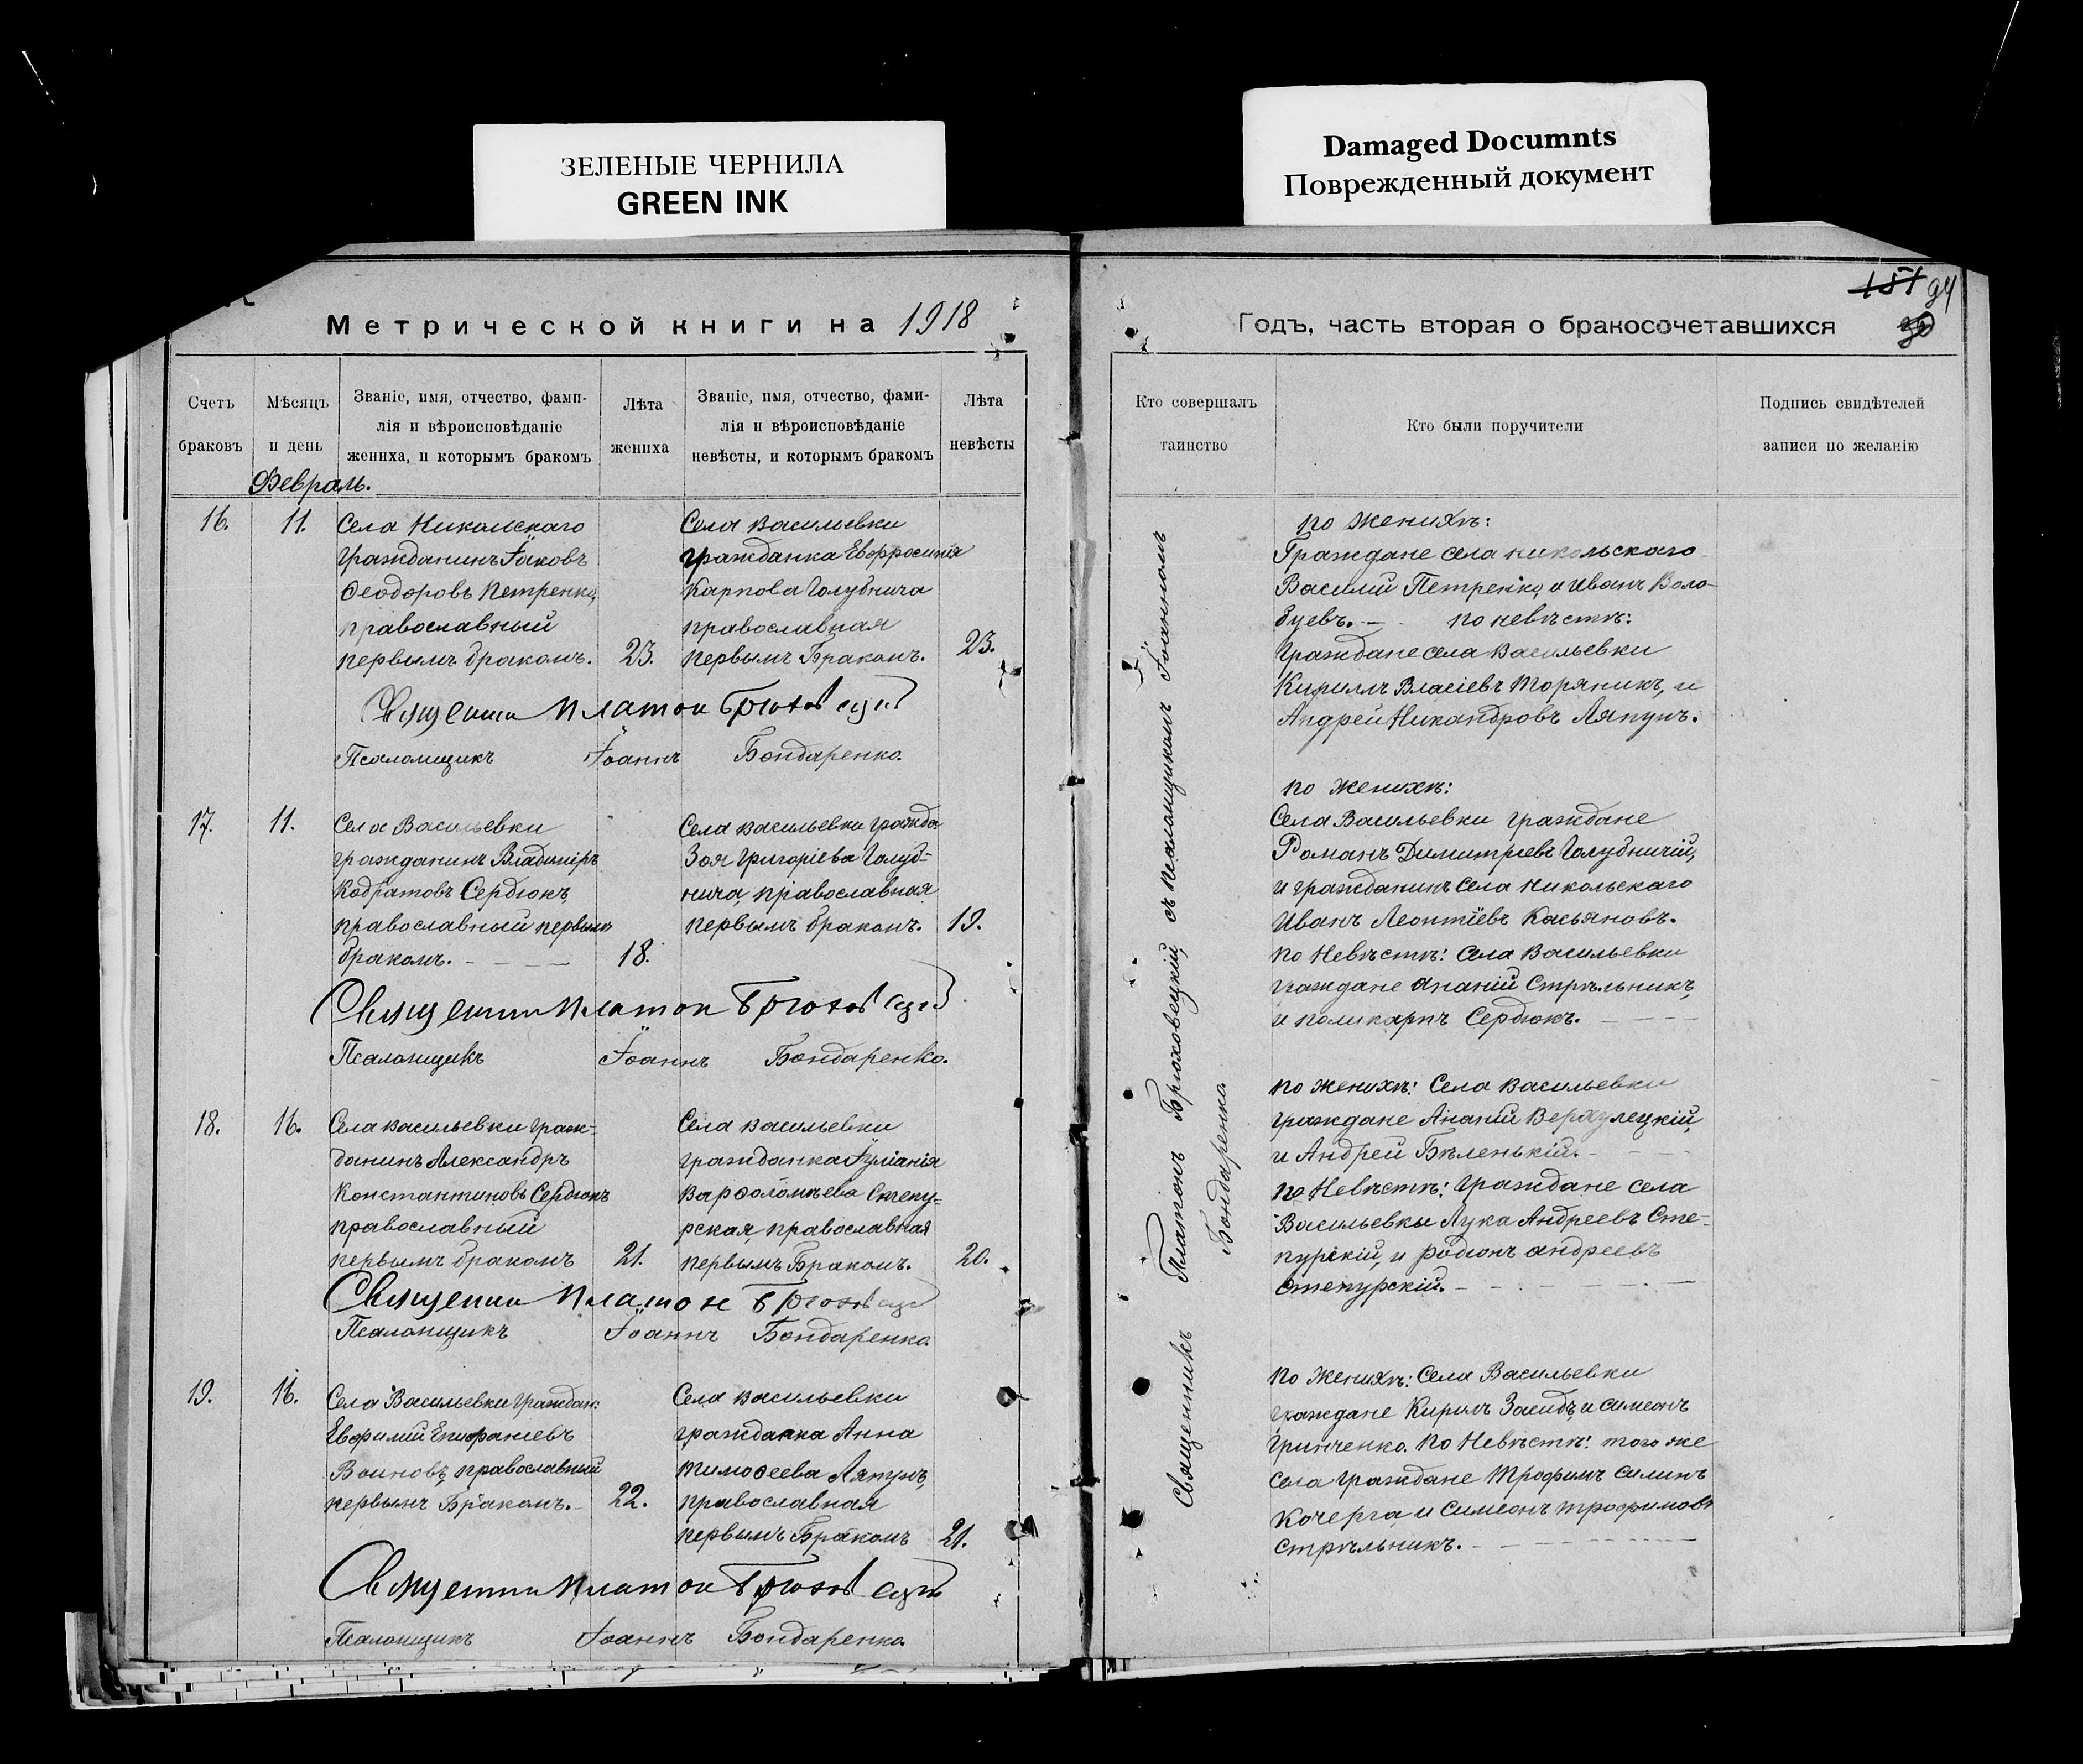 ЗЕЛЕНЫЕ ЧЕРНИЛА
GREEN INK
Damaged Documnts
Поврежденный документ
Метрической книги на 1918
Счетъ браковъ
Мѣсяцъ и день
Званіе, имя, отчество, фами-
лія и вѣроисповѣданіе
жениха, и которымъ бракомъ
Лѣта жениха
Званіе, имя, отчество, фами-
лія и вѣроисповѣданіе
невѣсты, и которымъ бракомъ
Лѣта невѣсты
Февраль.
16.
11.
Села Никольскаго
гражданинъ Іаковъ
Ѳеодоровъ Петренко,
православный
первымъ бракомъ.
23.
Села Васильевки
гражданка Евфросинія
Карпова Голубнича
православная
первымъ Бракомъ.
23.
Священни Платон Брюховецкій
Псаломщикъ Іоаннъ Бондаренко.
17.
11.
Села Васильевки
гражданинъ Владиміръ
Кодратовъ Сердюкъ,
православный первымъ
бракомъ.
18.
Села Васильевки гражда
Зоя Григоріева Голуб=
нича, православная
первымъ бракомъ.
19.
Священни Платон Брюховецкій
Псаломщикъ Іоаннъ Бондаренко.
18.
16.
Села Васильевки граж=
данинъ Александръ
Константиновъ Сердюкъ
православный
первымъ бракомъ
21.
Села Васильевки
гражданка Іуліанія
Варѳоломѣева Степу=
рская, православная
первымъ Бракомъ.
20.
Священни Платон Брюховецкій
Псаломщикъ Іоаннъ Бондаренко.
19.
16.
Села Васильевки граждан:
Евфимій Епифаніевъ
Воиновъ, православный
первымъ Бракомъ.
22.
Села Васильевки
гражданка Анна
Тимоѳеева Ляпунъ,
православная
первымъ Бракомъ
21.
Священни Платон Брюховецкій
Псаломщикъ Іоаннъ Бондаренко
151 94
30
Годъ, часть вторая о бракосочетавшихся
Кто совершалъ таинство
Кто были поручители
Подпись свидѣтелей записи по желанію
Священникъ Платонъ Брюховецкій, съ псаломщикомъ Іоанномъ
Бондаренко
по женихѣ:
Граждане села Никольскаго
Василій Петренко, и Иванъ Воло-
буевъ. — по невѣстѣ:
Граждане села Васильевки
Кириллъ Власіевъ Торяникъ, и
Андрей Никандровъ Ляпунъ.
по женихѣ:
Села Васильевки граждане
Романъ Димитріевъ Голубничій,
и гражданинъ села Никольскаго
Иванъ Леонтіевъ Касьяновъ.
по Невѣстѣ: Села Васильевки
граждане Ананій Стрѣльникъ,
и Поликарпъ Сердюкъ.
по женихѣ: Села Васильевки
граждане Ананій
и Андрей Бѣленькій.
по Невѣстѣ: граждане села
Васильевки Лука Андреевъ Сте-
пурскій, и Родіонъ Андреевъ
Степурскій.
по Женихѣ: Села Васильевки
граждане Кирилъ и Симеонъ
Гринченко. по Невѣстѣ: того же
села граждане Трофимъ Силинъ
Кочерга, и Симеонъ Трофимовъ
Стрѣльникъ.